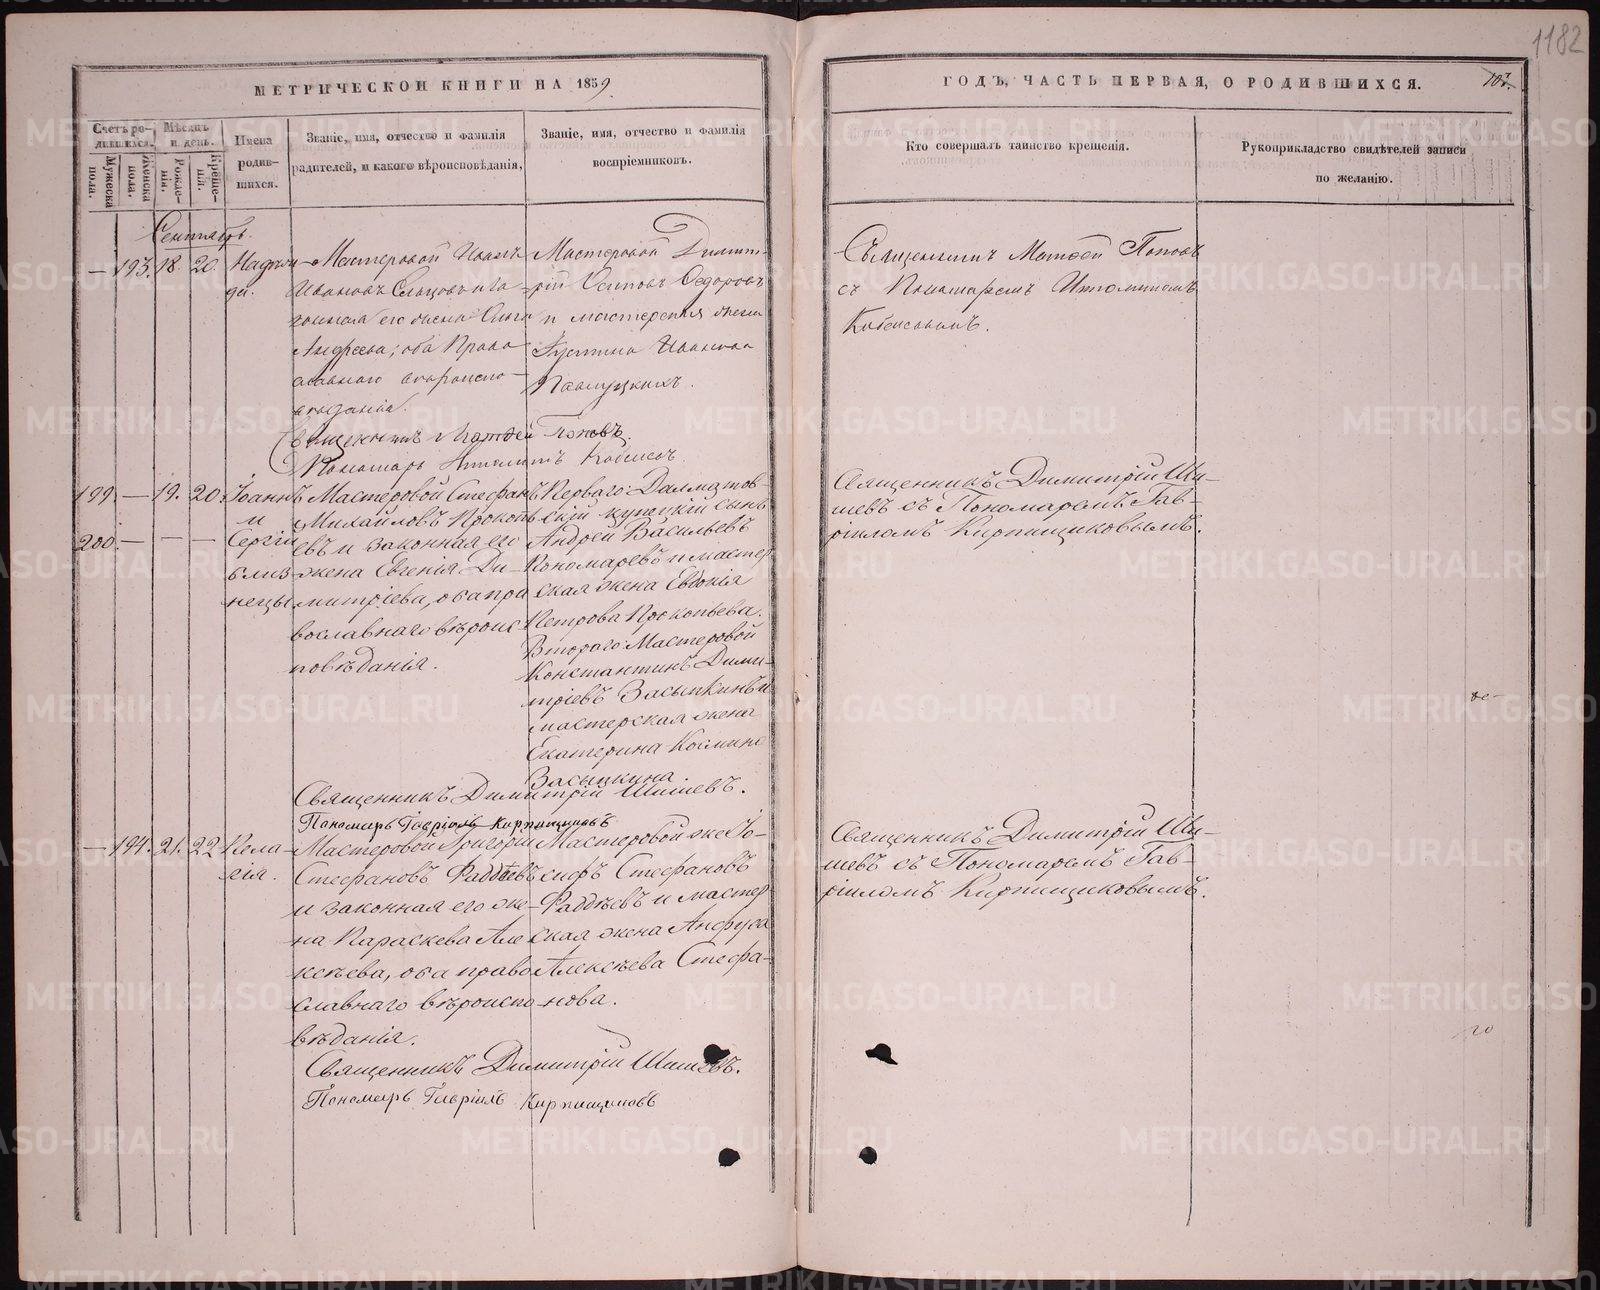 1182
МЕТРИЧЕСКОЙ КНИГИ НА 1859
ГОДЪ, ЧАСТЬ ПЕРВАЯ, О РОДИВШИХСЯ.
107.
Счетъ ро-
дившихся.
Мужеска
пола.
Женска
пола.
Мѣсяцъ
и день.
Рожде-
нія.
Креще-
нія.
Имена
родив-
шихся.
Званіе, имя, отчество и фамилія
родителей, и какого вѣроисповѣданія,
Званіе, имя, отчество и фамилія
воспріемниковъ.
Кто совершалъ таинство крещенія.
Рукоприкладство свидѣтелей записи
по желанію.
Сентябрь.
— 193. 18. 20.
Мастеровой Иванъ
Ивановъ
законная его жена
Андреева; оба Право
славнаго вѣроиспо-
вѣданія.
Мастеровой Димит-
рій Осиповъ Федоровъ
и мастерская жена
Іустина Иванова
Священникъ Матѳей Поповъ.
Пономарь
Священникъ Матѳей Поповъ
съ Пономаремъ
199. — 19. 20.
200. — — —
Іоаннъ
и
Сергій
близ-
нецы
Мастеровой Стефанъ
Михайловъ Прокопь
евъ и законная его
жена Евгенія Ди-
митріева, оба пра
вославнаго вѣроис
повѣданія.
Перваго: Далматов-
скій купецкій сынъ
Андрей Васильевъ
Пономаревъ и мастер
ская жена Евдокія
Петрова Прокопьева.
Втораго: Мастеровой
Константинъ Дими-
тріевъ Засыпкинъ и
мастерская жена
Екатерина Косьмина
Засыпкина.
Священникъ Димитрій Шишевъ.
Пономарь Гавріилъ Кирпищиковъ
Священникъ Димитрій Ши-
шевъ съ Пономаремъ Гав-
ріиломъ Кирпищиковымъ.
— 194. 21. 22.
Пела-
гія.
Мастеровой Григорій
Стефановъ Фаддѣевъ
и законная его же-
на Параскева Але
ксѣева, оба право
славнаго вѣроиспо
вѣданія.
Мастеровой же Іо-
сифъ Стефановъ
Фаддѣевъ и мастер
ская жена Анфуса
Алексѣева Стефа-
нова.
Священникъ Димитрій Шишевъ.
Пономарь Гавріилъ Кирпищиковъ
Священникъ Димитрій Ши-
шевъ съ Пономаремъ Гав-
ріиломъ Кирпищиковымъ.
METRIKI.GASO-URAL.RU